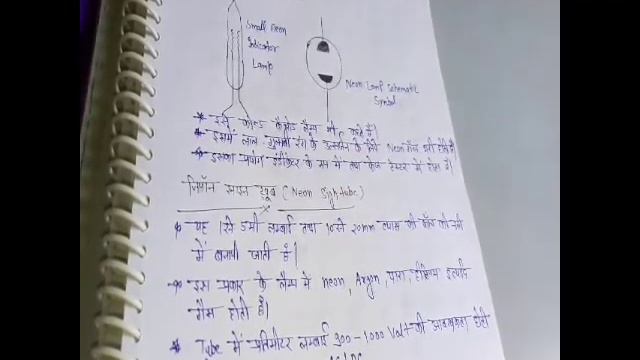 Small Neon
Indicator
Lamp
Neon Lamp Schematic
Symbol
* इसे कोल्ड कैथोड लैम्प भी कहते हैं।
* इसमें लाल गुलाबी रंग के उत्सर्जन के लिये Neon गैस भरी होती है।
* इसका प्रयोग इंडीकेटर के रूप में तथा फेज टेस्टर में होता है।
निऑन साइन ट्यूब (Neon Sign tube)
यह 1 से 5 मी लम्बाई तथा 10 से 20mm व्यास की काँच की नली
में बनायी जाती है।
* इस प्रकार के लैम्प में neon, Argon, पारा, हीलियम इत्यादि
गैस होती है।
* Tube में प्रतिमीटर लम्बाई 300-1000 Volt की आवश्यकता होती